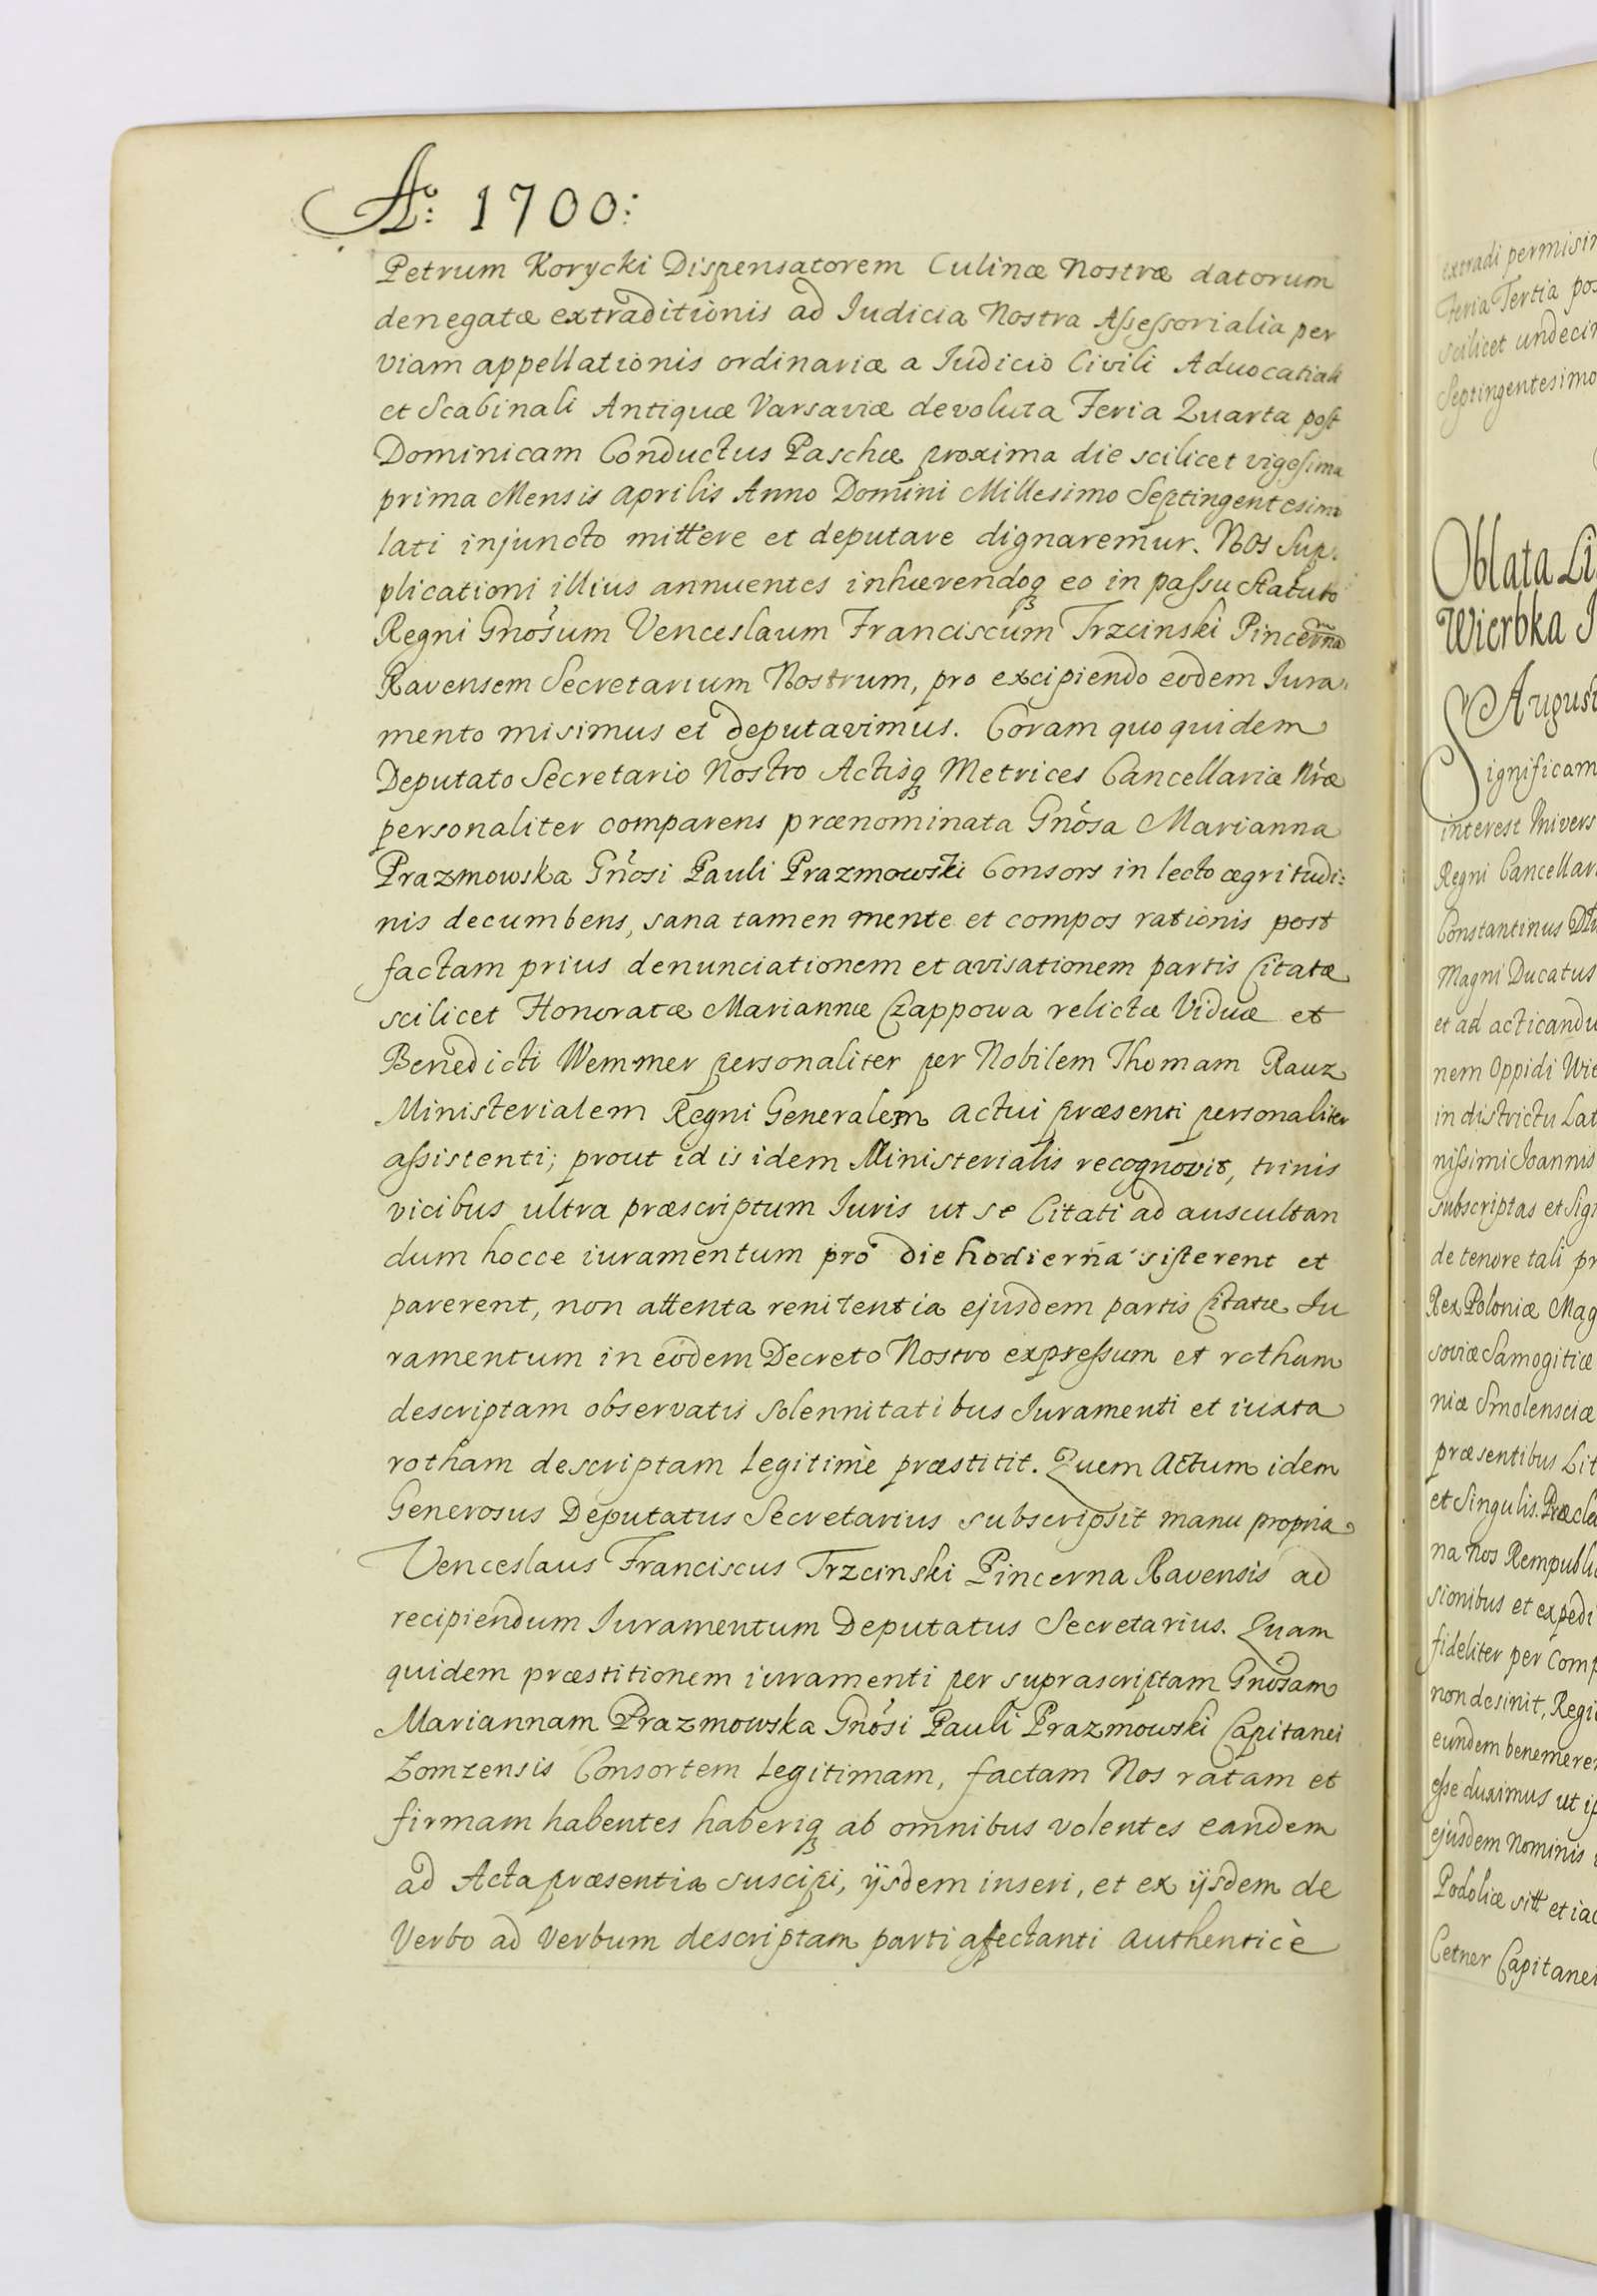 Aº: 1700:
Petrum Korycki Dispensatorem Culinæ Nostræ datorum
denegatæ extraditionis ad Iudicia Nostra Aſseſsorialia per
viam appellationis ordinariæ a Iudicio Civili Advocatiali
et Scabinali Antiquæ Varsaviæ devoluta Feria Quarta poſt
Dominicam Conductus Paschæ proxima die scilicet vigeſima
prima Mensis Aprilis Anno Domini Millesimo Septingentesimo
lati injuncto mittere et deputare dignaremur. Nos Sup-
plicationi illius annuentes inhærendoq3 eo in paſsu Statuto
Regni Gnosum Venceslaum Franciscum Trzcinski Pincernã
Ravensem Secretarium Nostrum, pro excipiendo eodem Iura-
mento misimus et deputavimus. Coram quo quidem
Deputato Secretario Nostro Actisq3 Metrices Cancellariæ Nræ
personaliter comparens prænominata Gnosa Marianna
Prazmowska Gnosi Pauli Prazmowski Consors in lecto ægritudi:
nis decumbens, sana tamen mente et compos rationis post
factam prius denunciationem et avisationem partis Citatæ
scilicet Honoratæ Mariannæ Czappowa relictæ Viduæ et
Benedicti Wemmer personaliter per Nobilem Thomam Rauz
Ministerialem Regni Generalem actui præsenti personaliter
aſsistenti; prout id is idem Ministerialis recognovit, trinis
vicibus ultra præscriptum Iuris ut se Citati ad auscultan
dum hocce iuramentum pro die hodierna siſterent et
parerent, non attenta renitentia ejusdem partis Citatæ Iu
ramentum in eodem Decreto Nostro expreſsum et rotham
descriptam observatis Solennitatibus Iuramenti et iuxta
rotham descriptam legitimè præstitit. Quem Actum idem
Generosus Deputatus Secretarius subscripsit manu propria
Venceslaus Franciscus Trzcinski Pincerna Ravensis ad
recipiendum Iuramentum Deputatus Secretarius. Quam
quidem præstitionem iuramenti per suprascriptam Gnosam
Mariannam Prazmowska Gnosi Pauli Prazmowski Capitanei
Lomzensis Consortem legitimam, factam Nos ratam et
firmam habentes haberiq3 ab omnibus volentes eandem
ad Acta præsentia suscipi, ijsdem inseri, et ex ijsdem de
Verbo ad Verbum descriptam parti afectanti authenticè
extradi permisim
Feria Tertia pos
scilicet undecim
Septingentesimo
Oblata Li
Wierbka I
August
Significam
interest Univers
Regni Cancellari
Constantinus
Magni Ducatus
et ad acticandu
nem Oppidi Wie
in districtu Lat
niſsimi Ioannis
subscriptas et Sigi
de tenore tali pr
Rex Poloniæ Mag
soviæ Samogitiæ
niæ Smolensciæ
præsentibus Lit
et Singulis. Præcla
na Nos Rempubli
sionibus et expedi
fideliter per Comp
non desinit, Regi
eundem benemere
eſse duximus ut ip
ejusdem Nominis
Podoliæ sitt et iac
Cetner Capitanei